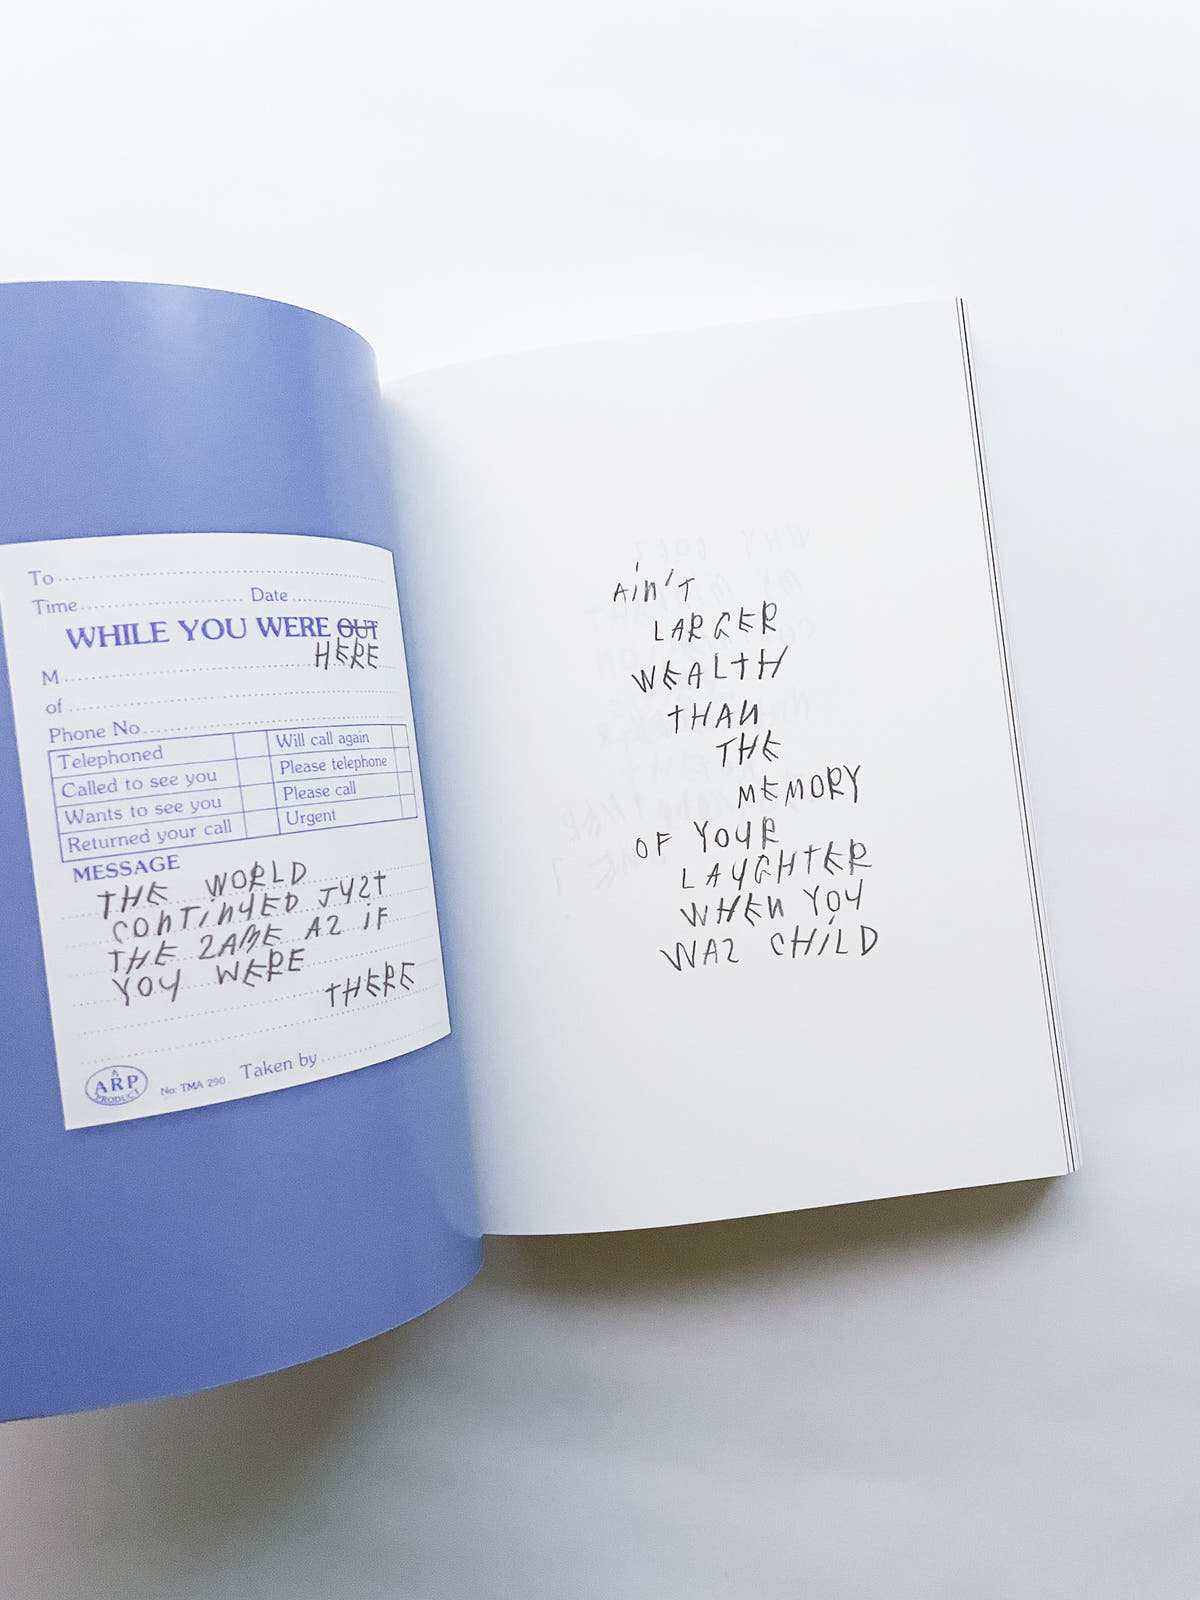 To
Time Date
WHILE YOU WERE OUT
HERE
M
of
Phone No
Telephoned Will call again
Called to see you Please telephone
Wants to see you Please call
Returned your call Urgent
MESSAGE
THE WORLD
CONTINUED JUST
THE SAME AS IF
YOU WERE
THERE
A ARP PRODUCT No: TMA 290 Taken by
AIN'T
LARGER
WEALTH
THAN
THE
MEMORY
OF YOUR
LAUGHTER
WHEN YOU
WAS CHILD